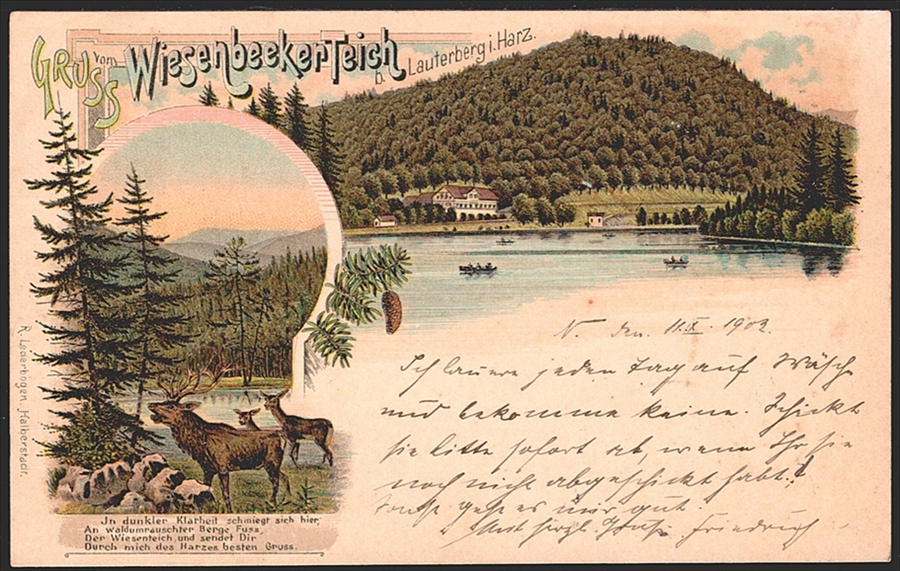 Gruss vom Wiesenbeeker Teich
b. Lauterberg i. Harz.
R. Lederbogen, Halberstadt.
N. den 11.IX. 1902.
Ich lauere jeden Tag auf Wäsche
und bekomme keine. Schickt
sie bitte sofort ab, wenn Ihr sie
noch nicht abgeschickt habt!
Sonst geht es mir gut.
Mit herzl. Gruß Friedrich
Jn dunkler Klarheit schmiegt sich hier,
An waldumrauschter Berge Fuss,
Der Wiesenteich, und sendet Dir
Durch mich des Harzes besten Gruss.